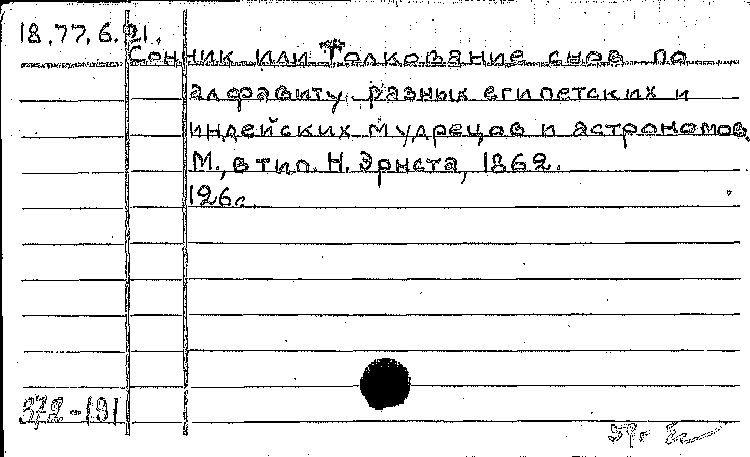 18.77.6.21.
Сонник или Толкование снов по
алфавиту разных египетских и
индейских мудрецов и астрономов
М., в тип. Н. Эрнста, 1862.
126с.
372-191